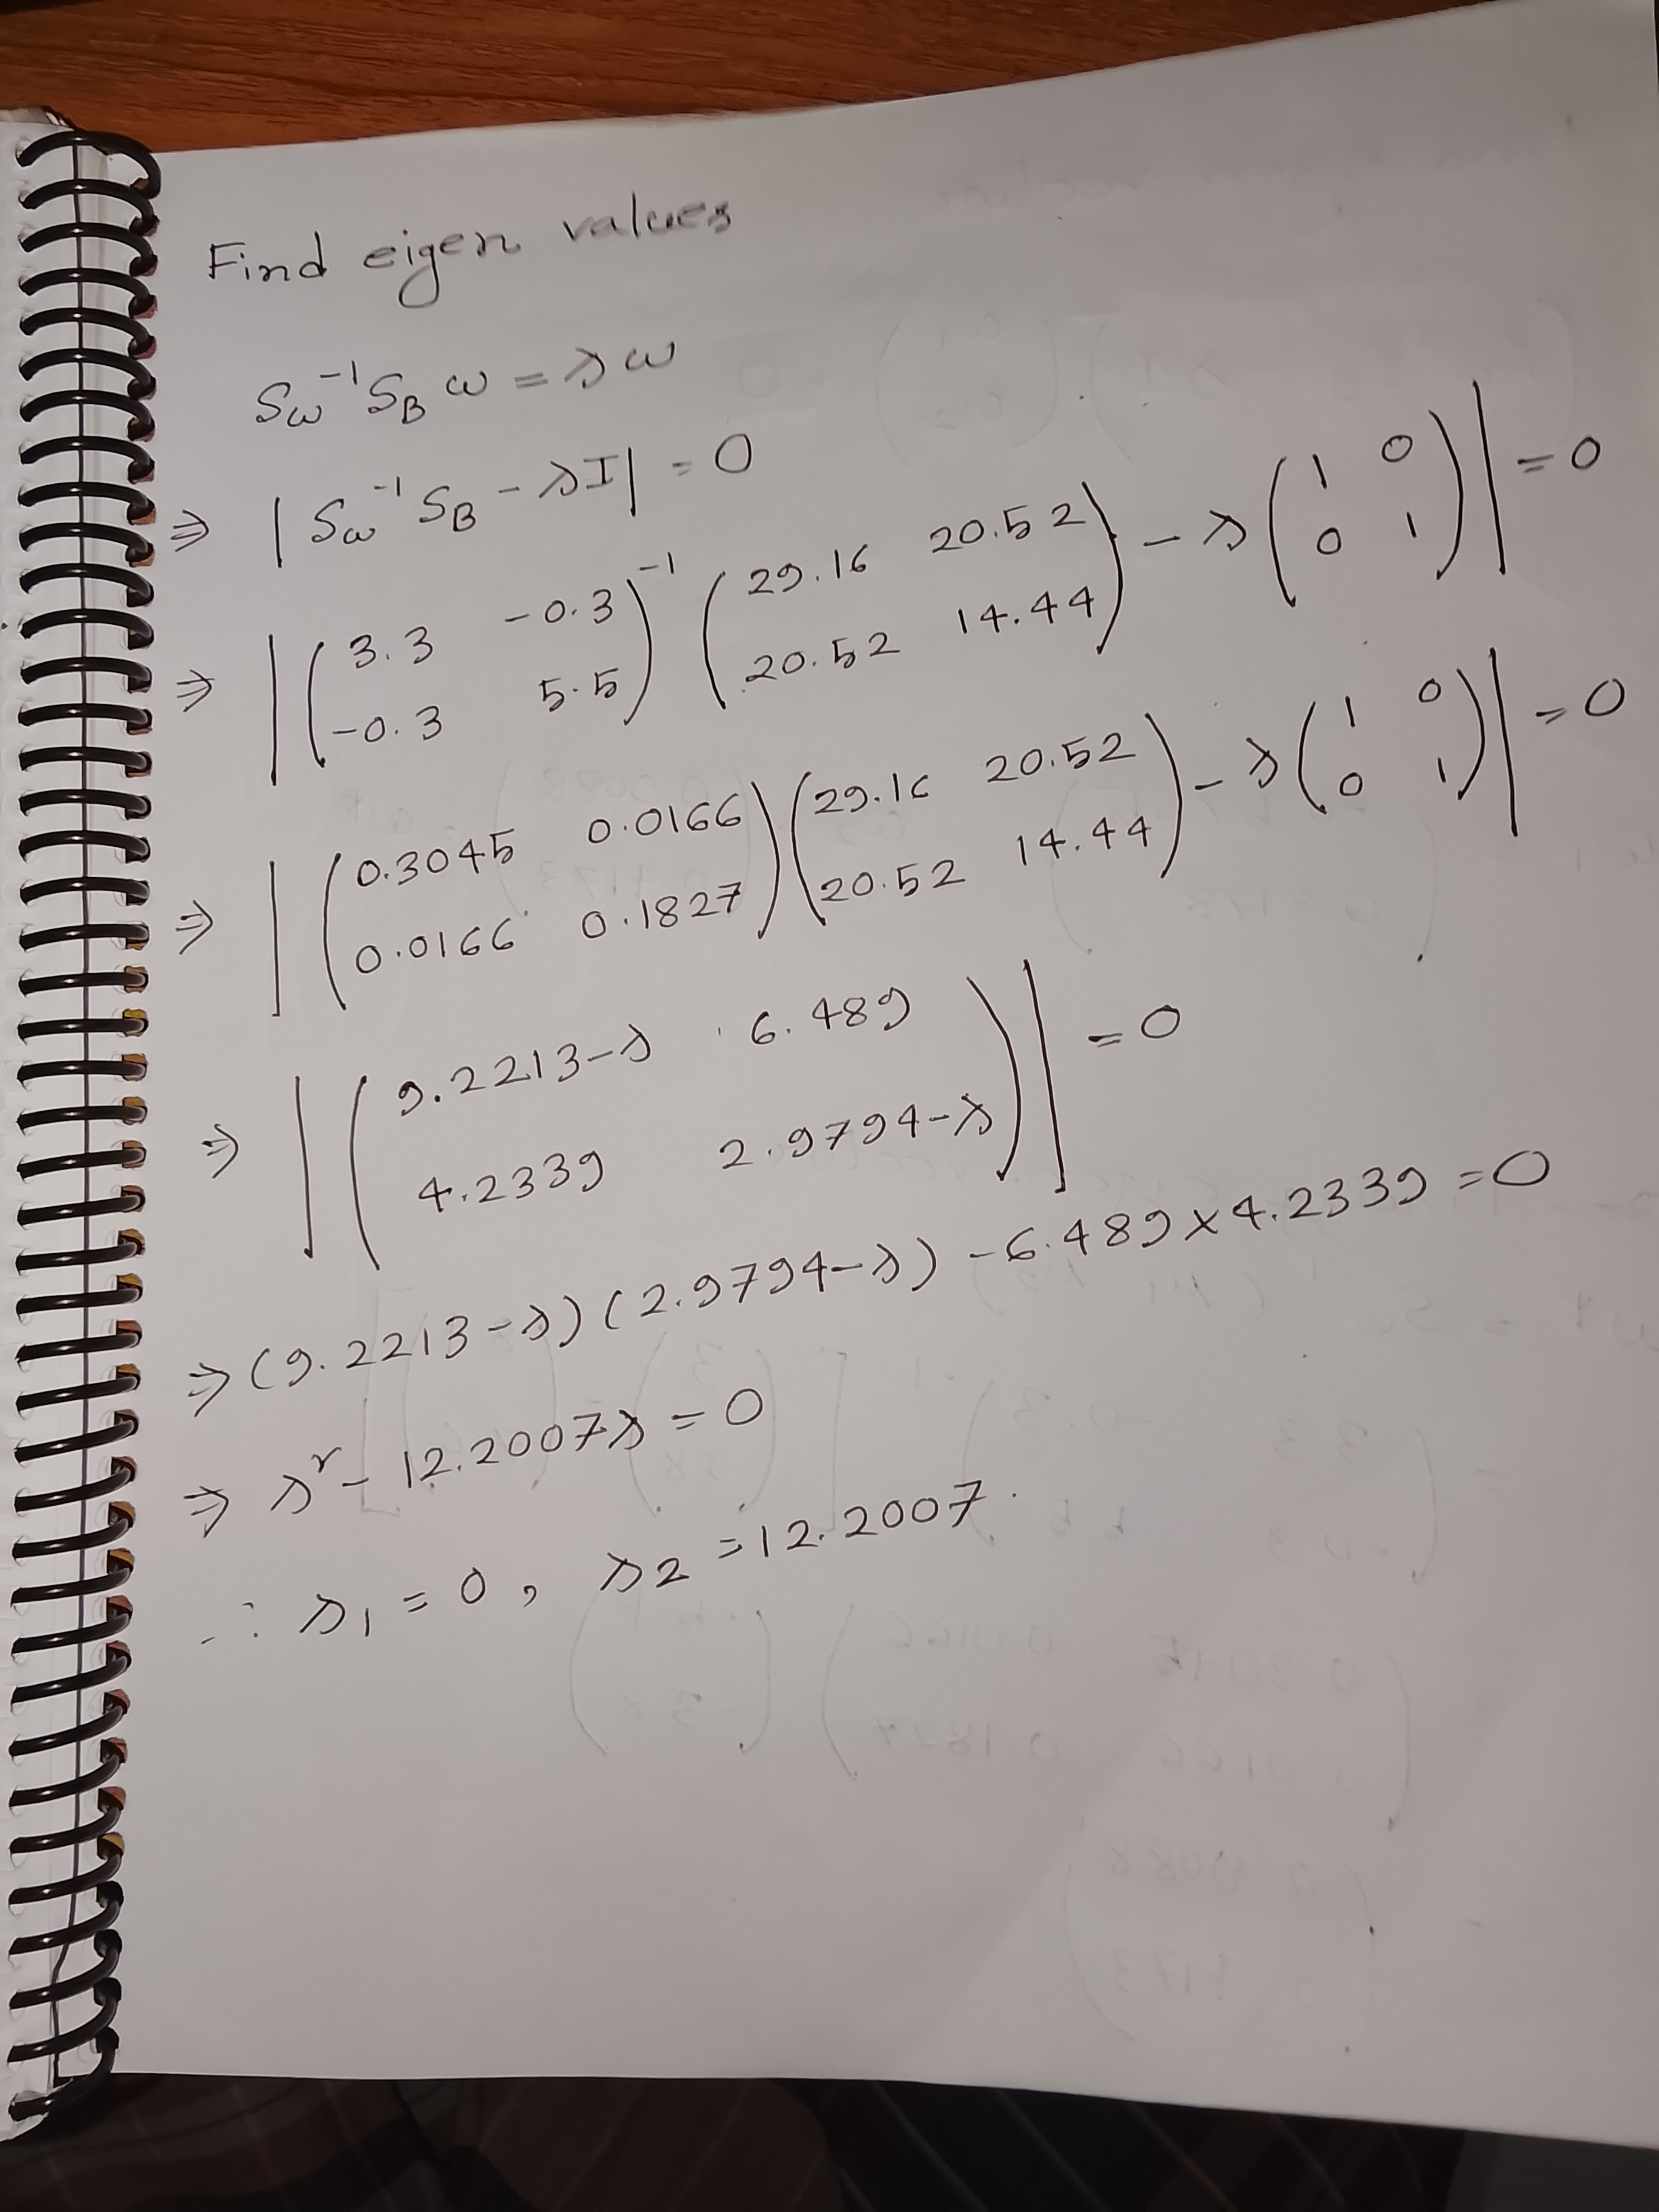 Find eigen values
Sω⁻¹ S_B ω = λω
⇒ | Sω⁻¹ S_B - λI | = 0
⇒ | ( 3.3 -0.3 ; -0.3 5.5 )⁻¹ ( 29.16 20.52 ; 20.52 14.44 ) - λ ( 1 0 ; 0 1 ) | = 0
⇒ | ( 0.3045 0.0166 ; 0.0166 0.1827 ) ( 29.16 20.52 ; 20.52 14.44 ) - λ ( 1 0 ; 0 1 ) | = 0
⇒ | ( 9.2213-λ 6.489 ; 4.2339 2.9794-λ ) | = 0
⇒ (9.2213-λ) (2.9794-λ) - 6.489 × 4.2339 = 0
⇒ λ² - 12.2007λ = 0
∴ λ₁ = 0, λ₂ = 12.2007.